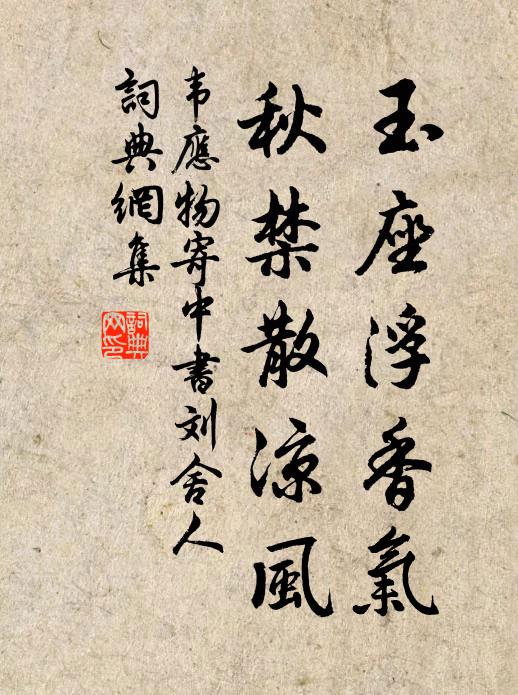 玉座浮香氣
秋禁散涼風
韦應物寄中書刘舍人
詞典網集
詞典
网印